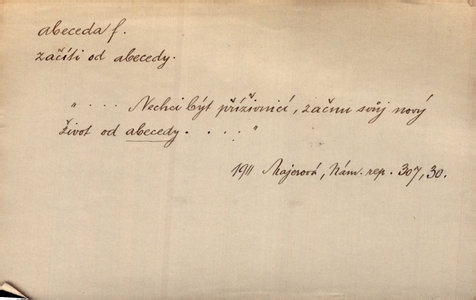 abeceda f.
začíti od abecedy.
„ . . . . Nechci být příživnicí, začnu svůj nový
život od abecedy . . . . "
1911 Majerová, Nám. rep. 307, 30.